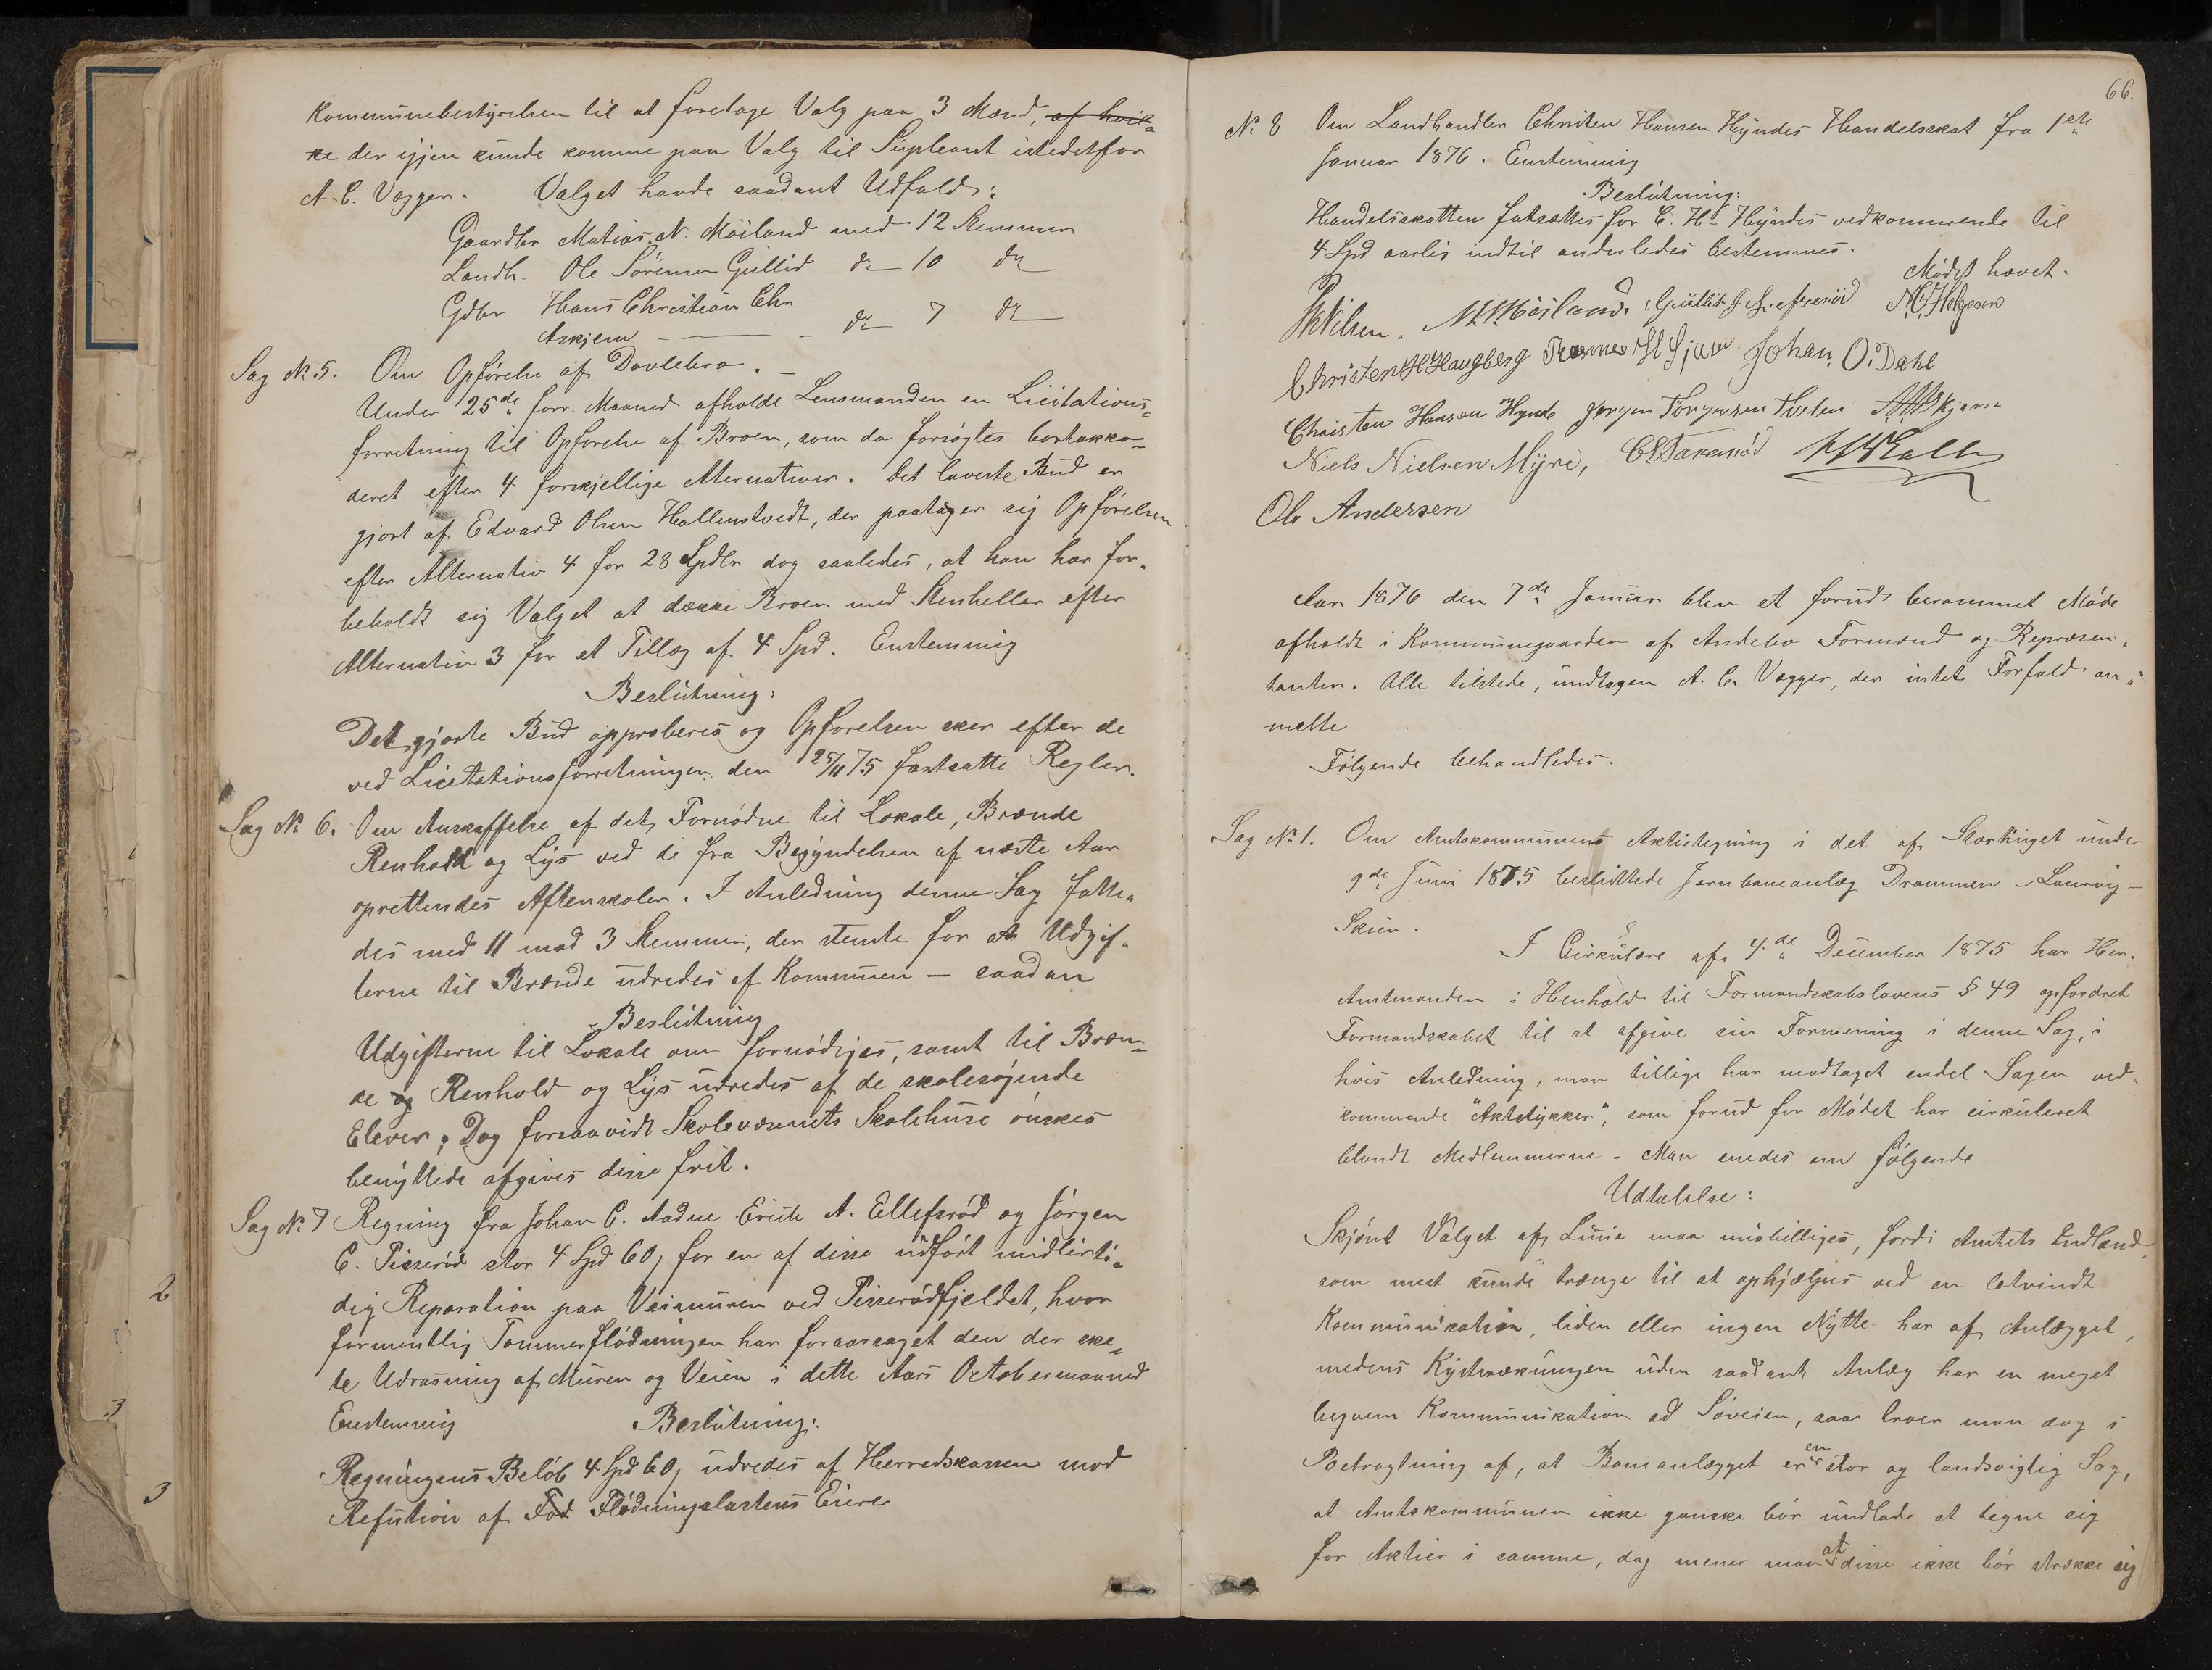 Kommunebestyrelsen til at foretage Valg paa 3 Mænd, af hvil-
ke der igjen kunde komme paa Valg til Supleant istedetfor
A. C. Vegger. Valget havde saadant Udfald:
Gaardbr Matias N. Möiland med 12 Stemmer
Landh. Ole Sörensen Gullid do 10 do
Gdbr Hans Christian Chr
Askjem do 7 do
Sag No 5. Om Opförelse af Dovlebro. –
Under 25de forr. Maaned afholdt Lensmanden en Licitations-
forretning til Opförelse af Broen, som da forsögtes bortakko-
deret efter 4 forskjellige Alternativer. Det laveste Bud er
gjort af Edvard Olsen Hallenstvedt, der paatager sig Opförelsen
efter Alternativ 4 for 28 Spdlr dog saaledes, at han har for-
beholdt sig Valget at dække Broen med Stenheller efter
Alternativ 3 for et Tillæg af 4 Spd. Enstemmig
Beslutning:
Det gjorte Bud approberes og Opförelsen sker efter de
ved Licitationsforretningen den 25/11 75 fastsatte Regler.
Sag No 6. Om Anskaffelse af det Fornödne til Lokale, Brænde
Renhold og Lys ved de fra Begyndelsen af næste Aar
oprettendes Aftenskoler. I Anledning denne Sag fatte-
des med 11 mod 3 Stemmer, der stemte for at Udgif-
terne til Brænde udredes af Kommunen – saadan
Beslutning
Udgifterne til Lokale om fornödiges, samt til Bræn-
de og Renhold og Lys udredes af de skolesögende
Elever; Dog forsaavidt Skolevæsenets Skolehuse önskes
benyttede afgives disse frit.
Sag No 7 Regning fra Johan C. Aadne Erick A. Ellefsröd og Jörgen
C. Pisseröd stor 4 Spd 60 for en af disse udfört midlerti-
dig Reparation paa Veimuren ved Pisserödfjeldet, hvor
formentlig Tömmerflödningen har foraarsaget den der ske-
te Udrasning af Muren og Veien i dette Aars Octobermaaned
Enstemmig Beslutning:
Regningens Belöb 4 Spd 60 udredes af Herredskassen mod
Refution af Flödningslastens Eiere
66.
No 8 Om Landhandler Christen Hansen Hyndes Handelsskat fra 1ste
Januar 1876. Enstemmig
Beslutning:
Handelsskatten fastsættes for C. H. Hyndes vedkommende til
4 Spd aarlig indtil anderledes bestemmes.
Mödet hævet.
Nilsen. M N Möiland. Gullik N. Helgesen
Christen H Haugberg Rasmus Johan O. Dahl
Christen Hansen Hynde Jørgen Törgersen Askjem
Niels Nielsen Myre,
Ole Andersen
Aar 1876 den 7de Januar blev et forud berammet Möde
afholdt i Kommunegaarden af Andebo Formænd og Repræsen-
tanter. Alle tilstede, undtagen A. C. Vegger, der intet Forfald an-
meldte
Fölgende behandledes.
Sag No 1. Om Amtskommunens Aktietegning i det af Storthinget under
9de Juni 1875 besluttede Jernbaneanlæg Drammen – Laurvig –
Skien.
I Cirkulære af 4de December 1875 har Hr.
Amtmanden i Henhold til Formandskabslovens § 49 opfordret
Formandskabet til at afgive sin Formening i denne Sag, i
hvis Anledning, man tillige har modtaget endel Sagen ved-
kommende "Aktstykker", som forud for Mödet har cirkuleret
blandt Medlemmerne. Man enedes om fölgende
Udtalelse:
Skjönt Valget af Linie maa misbilliges, fordi Amtets Indland
som mest kunde trænge til at ophjælpes ved en letvindt
Kommunikation, liden eller ingen Nytte har af Anlægget,
medens Kyststrækningen uden saadant Anlæg har en meget
beqvem Kommunikation ad Söveien, saa troer man dog i
Betragtning af, at Baneanlægget er en stor og landsvigtig Sag,
at Amtskommunen ikke ganske bör undlade at tegne sig
for Aktier i samme, dog mener man at disse ikke bör strække sig